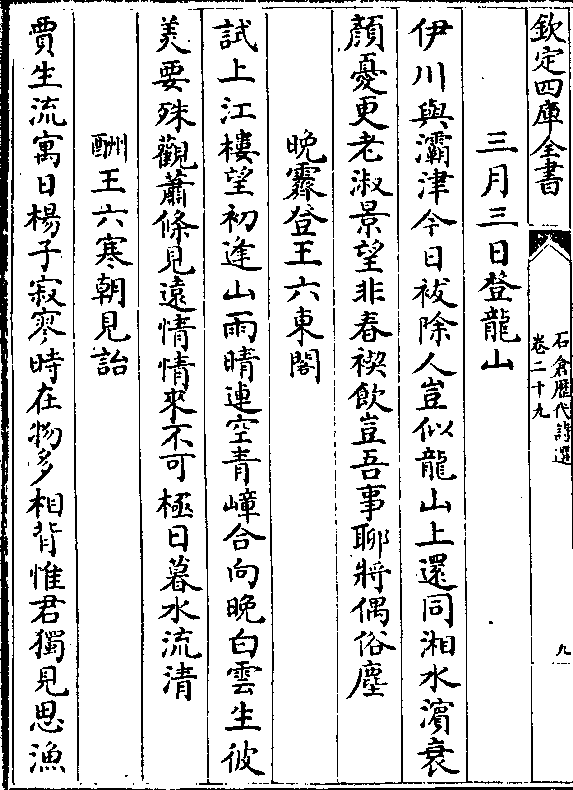 欽定四庫全書
石倉歷代詩選
卷二十九
九
三月三日登龍山
伊川與灞津今日祓除人豈似龍山上還同湘水濱衰
顏憂更老淑景望非春禊飲豈吾事聊將偶俗塵
晚霽登王六東閣
試上江樓望初逢山雨晴連空青嶂合向晚白雲生彼
美要殊觀蕭條見遠情情來不可極日暮水流清
酬王六寒朝見詒
賈生流寓日楊子寂寥時在物多相背惟君獨見思漁